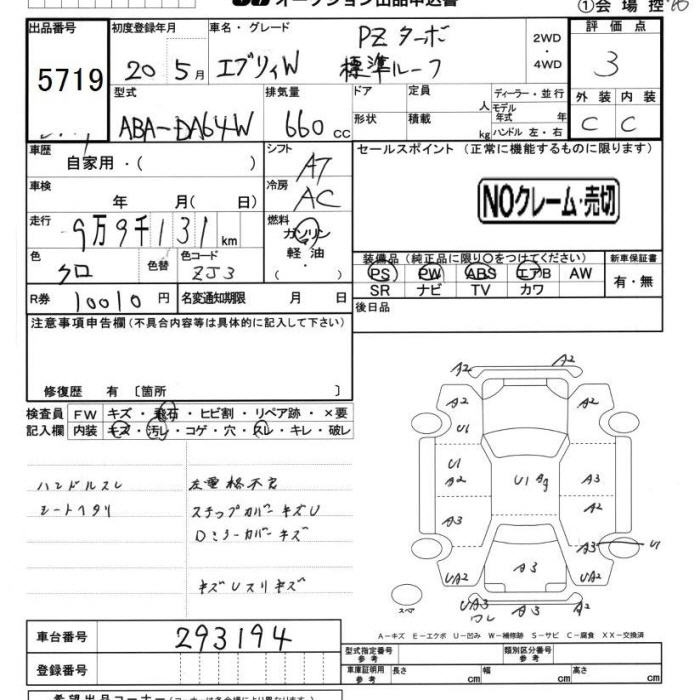 オークション出品申込書
①会場控
出品番号
5719
初度登録年月
20 5月
車名・グレード
PZターボ
エブリィW 標準ルーフ
2WD
・
4WD
評価点
3
型式
ABA-DA64W
排気量
660 cc
ドア
形状
定員
人
積載
kg
ディーラー・並行
モデル年式 年
ハンドル 左・右
外装 内装
C C
車歴
自家用・( )
シフト
AT
セールスポイント (正常に機能するものに限ります)
車検
年 月( 日)
冷房
AC
NOクレーム・売切
走行
9万9千131 km
燃料
ガソリン
軽油
・( )
色
クロ
色替
色コード
ZJ3
装備品(純正品に限り○をつけてください)
PS PW ABS エアB AW
SR ナビ TV カワ
新車保証書
有・無
R券 10010円
名変通知期限 月 日
後日品
注意事項申告欄(不具合内容等は具体的に記入して下さい)
修復歴 有 〔箇所 〕
検査員
記入欄
FW キズ・飛石・ヒビ割・リペア跡・×要
内装 キズ・汚レ・コゲ・穴・スレ・キレ・破レ
ハンドルスレ 左電格不良
シートヘタリ ステップカバーキズU
Dミラーカバーキズ
キズUスリキズ
A2
A2
A2
A2
U1
U1
A2
U1
A3
A3
A2
A3
A3
U1
UA2
A3
UA2
UA3
ワレ
A2
スペ
A-キズ E-エクボ U-凹み W-補修跡 S-サビ C-腐食 XX-交換済
車台番号
293194
登録番号
型式指定番号
参考
類別区分番号
参考
車庫証明用
参考
長さ cm
幅 cm
高さ cm